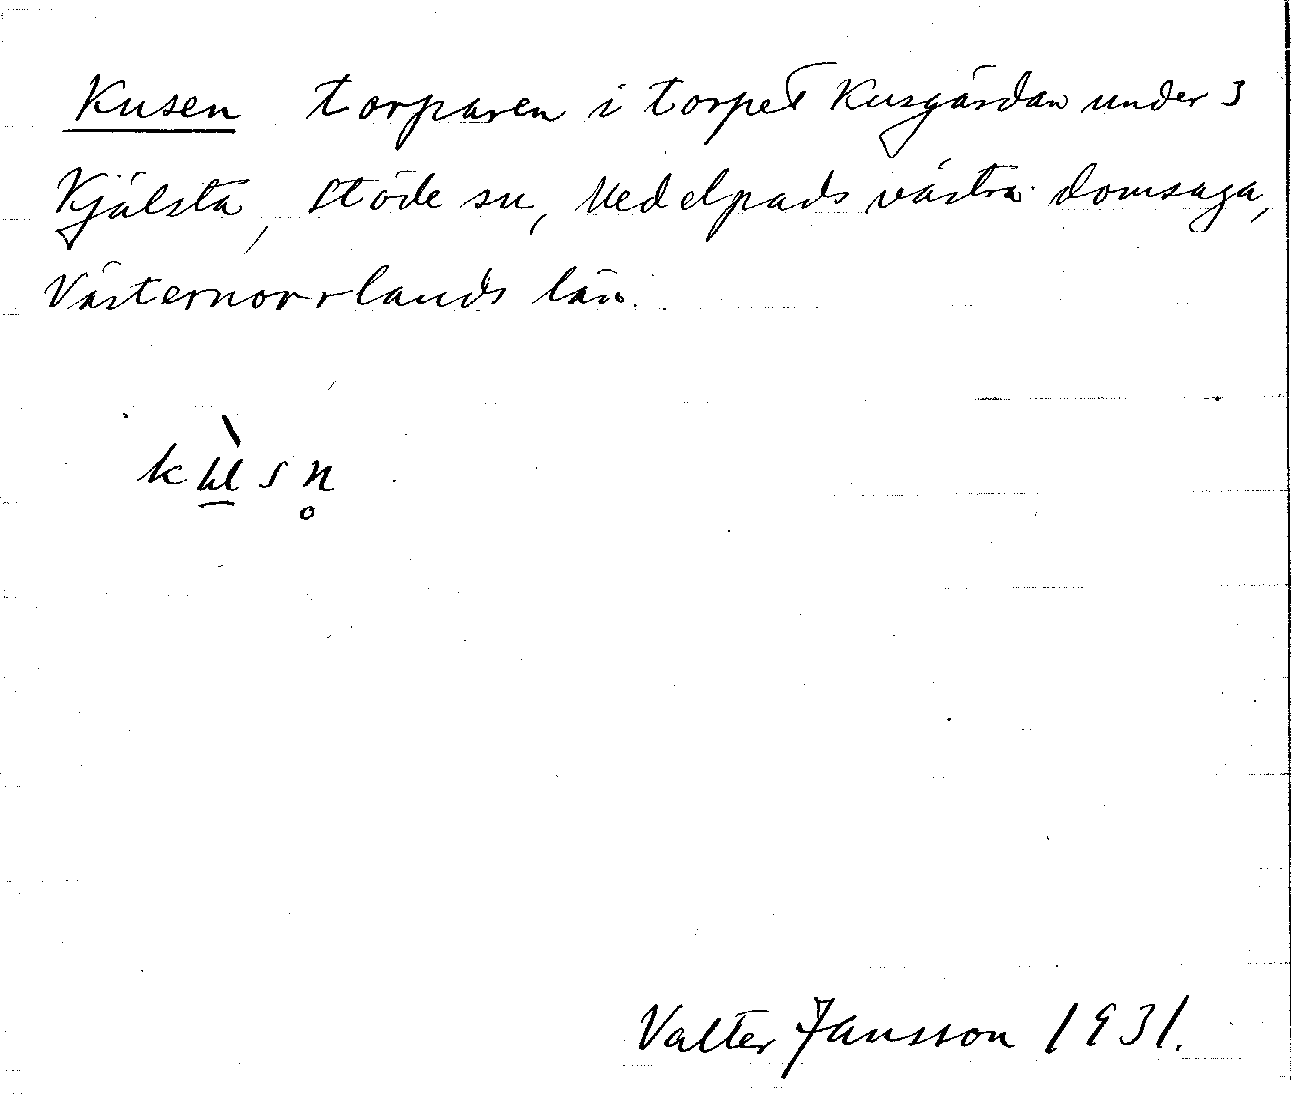 Kusen torparen i torpet Kusgärdan under 3
Kjälsta, Stöde sn, Medelpads västra domsaga,
Västernorrlands län.
kɯ̠̀sn̥
Valter Jansson 1931.